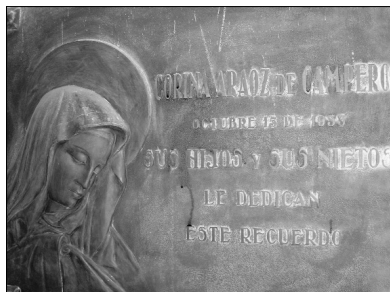 CORINA ARAOZ DE CAMPERO
15 DE
SUS HIJOS y SUS NIETOS
LE DEDICAN
ESTE RECUERDO